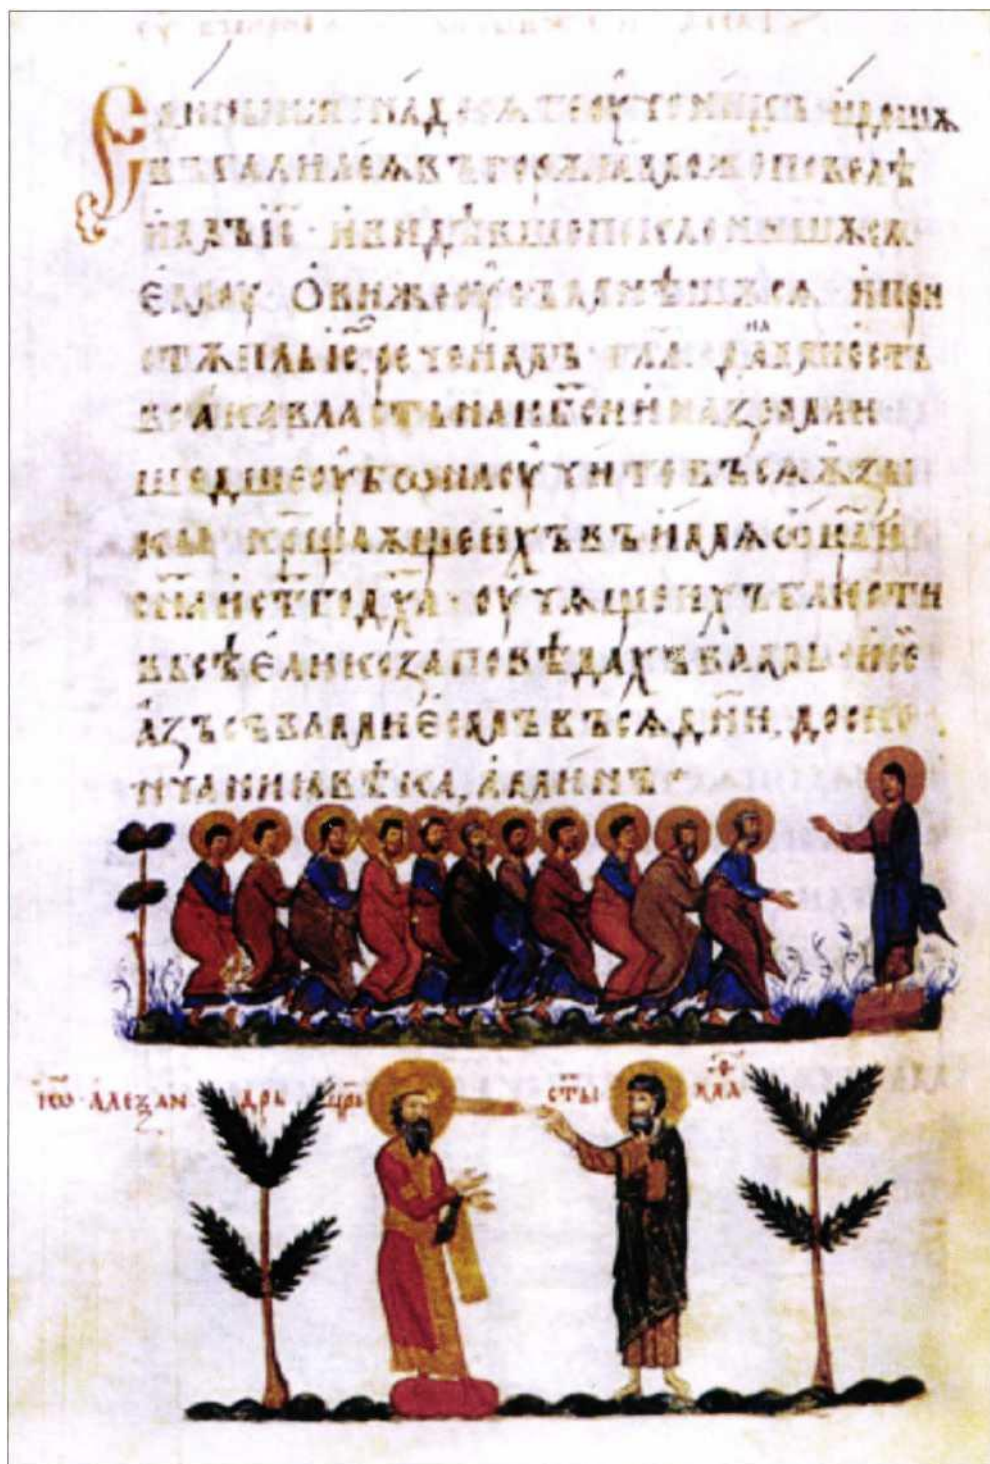 Единыи же на десѧте оученикъ идошѫ
въ галилеѫ въ горѫ ѧможе повелѣ
имъ іс҃ · и видѣвше поклонишѫсѧ
емоу ови же оусѫмнѣшѫсѧ и при
стѫпль іс҃ рече имъ · гл҃ѧ дана ми естъ
всѣка власть на нб҃си и на земли
шедше оубѡ наоучите въсѧ ѧзы
кы кр҃щаѫще ихъ въ имѧ ѡц҃а и
сн҃а и ст҃го дх҃а · оучѧще ихъ блюсти
въсѣ елико заповѣдахъ вамъ и се
азъ съ вами есмъ въ сѧ дн҃и, до ско
нчаниа вѣка, аминъ
іѡ҃ · алеѯандрь цр҃ь ст҃ы маѳ